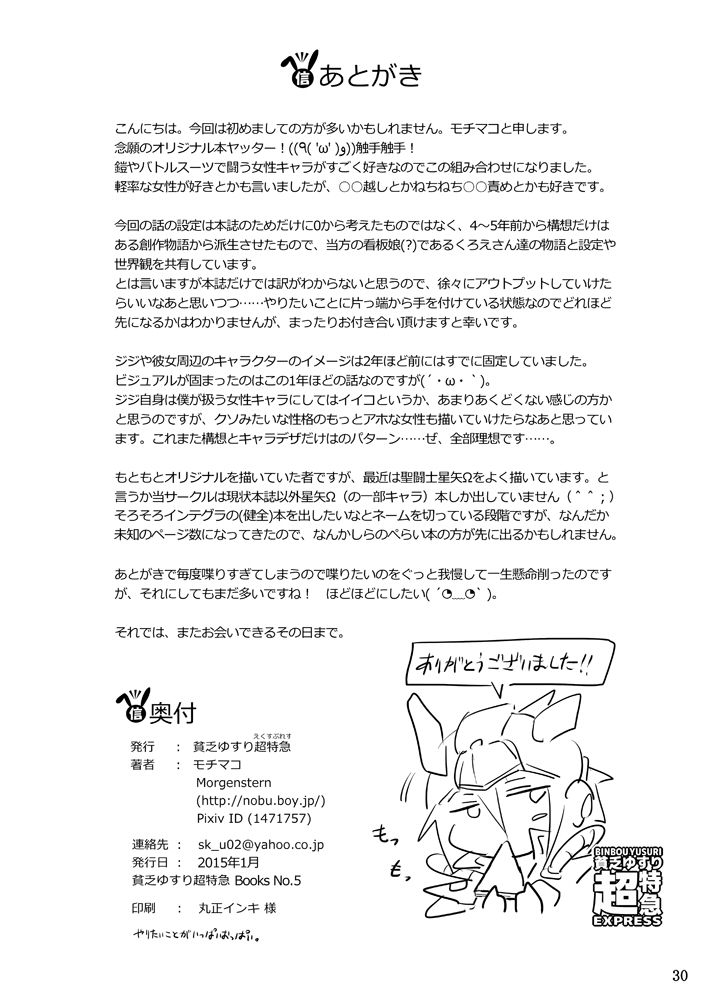 信 あとがき
こんにちは。今回は初めましての方が多いかもしれません。モチマコと申します。
念願のオリジナル本ヤッター！((٩( 'ω' )و))触手触手！
鎧やバトルスーツで闘う女性キャラがすごく好きなのでこの組み合わせになりました。
軽率な女性が好きとかも言いましたが、○○越しとかねちねち○○責めとかも好きです。
今回の話の設定は本誌のためだけに0から考えたものではなく、4～5年前から構想だけは
ある創作物語から派生させたもので、当方の看板娘(?)であるくろえさん達の物語と設定や
世界観を共有しています。
とは言いますが本誌だけでは訳がわからないと思うので、徐々にアウトプットしていけた
らいいなあと思いつつ……やりたいことに片っ端から手を付けている状態なのでどれほど
先になるかはわかりませんが、まったりお付き合い頂けますと幸いです。
ジジや彼女周辺のキャラクターのイメージは2年ほど前にはすでに固定していました。
ビジュアルが固まったのはこの1年ほどの話なのですが(´・ω・｀)。
ジジ自身は僕が扱う女性キャラにしてはイイコというか、あまりあくどくない感じの方か
と思うのですが、クソみたいな性格のもっとアホな女性も描いていけたらなあと思ってい
ます。これまた構想とキャラデザだけはのパターン……ぜ、全部理想です……。
もともとオリジナルを描いていた者ですが、最近は聖闘士星矢Ωをよく描いています。と
言うか当サークルは現状本誌以外星矢Ω（の一部キャラ）本しか出していません（＾＾；）
そろそろインテグラの(健全)本を出したいなとネームを切っている段階ですが、なんだか
未知のページ数になってきたので、なんかしらのぺらい本の方が先に出るかもしれません。
あとがきで毎度喋りすぎてしまうので喋りたいのをぐっと我慢して一生懸命削ったのです
が、それにしてもまだ多いですね！　ほどほどにしたい( ´◔‿◔` )。
それでは、またお会いできるその日まで。
ありがとうございました!!
信 奥付
えくすぷれす
発行　：　貧乏ゆすり超特急
著者　：　モチマコ
Morgenstern
(http://nobu.boy.jp/)
Pixiv ID (1471757)
連絡先 ：　sk_u02@yahoo.co.jp
発行日 ：　2015年1月
貧乏ゆすり超特急 Books No.5
印刷　：　丸正インキ 様
やりたいことがいっぱいおっぱい。
もっ
もっ
BINBOUYUSURI
貧乏ゆすり
超特急
EXPRESS
30